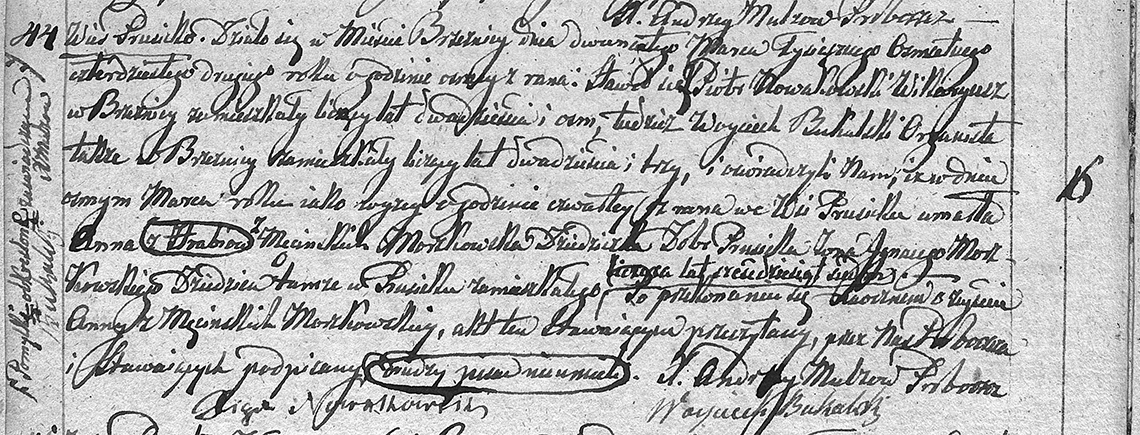 X. Andrzey Mulzow Proboszcz
44 Wieś Prusicko. Działo się w Mieście Brzeźnicy dnia dwunastego Marca tysiącznego osmsetnego
czterdziestego drugiego roku o godzinie osmey z rana. Stawił się Piotr Nowakowski Wikaryusz
w Brzeźnicy zamieszkały liczący lat dwadzieścia i osm, tudzież Woyciech Bukalski Organista
także w Brzeźnicy zamieszkały liczący lat dwadzieścia i trzy, i oświadczyli Nam, iż w dniu
osmym Marca roku jako wyżey o godzinie czwartey z rana we Wsi Prusicku umarła
Anna z Hrabiow Męcinskich Morzkowska Dziedziczka Dobr Prusicka żona Ignacego Morz-
kowskiego Dziedzica tamże w Prusicku zamieszkałego liczącą lat sześćdziesiąt
Po przekonaniu się naocznem o zejściu
Anny z Męcinskich Morzkowskiey, akt ten stawaiącym przeczytany, przez Nas Proboszcza
i stawaiących podpisany drudzy pisać nieumieli. X. Andrzey Mulzow Proboszcz
Nowakowski Woyciech Bukalski
Pomyłki odkreślone
Bukalski
16